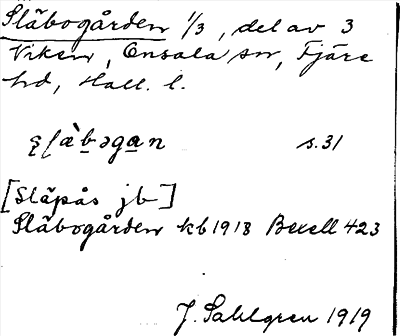 Släbogården 1/3, del av 3
Viken, Onsala sn, Fjäre
hd, Hall. l.
s.31
[Släpås jb]
Släbogården kb 1918 Bexell 423
J. Sahlgren 1919